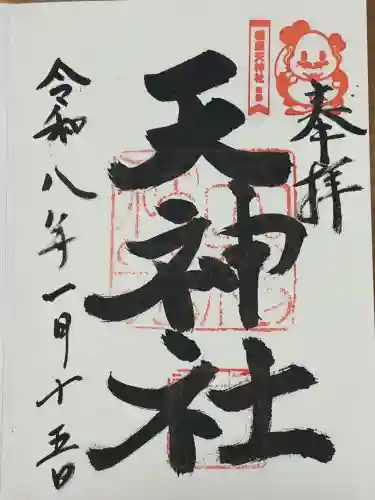 奉拝
天神社
令和八年一月十五日